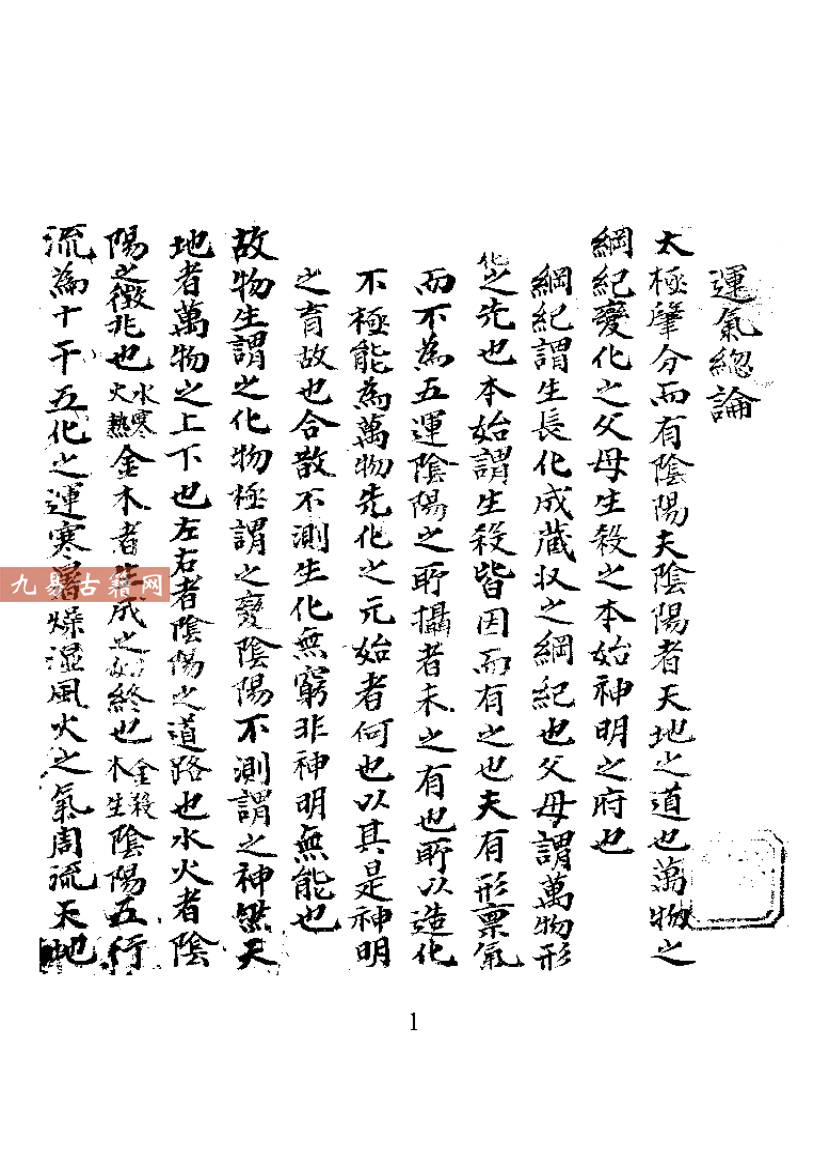 運氣總論
太極肇分而有陰陽夫陰陽者天地之道也萬物之
綱紀變化之父母生殺之本始神明之府也
綱紀謂生長化成蔵収之綱紀也父母謂萬物形
化之先也本始謂生殺皆因而有之也夫有形稟氣
而不為五運陰陽之所攝者未之有也所以造化
不極能為萬物先化之元始者何也以其是神明
之育故也合散不測生化無窮非神明無能也
故物生謂之化物極謂之變陰陽不測謂之神然天
地者萬物之上下也左右者陰陽之道路也水火者陰
陽之徵兆也水寒火熱金木者生成之始終也金殺木生陰陽五行
流為十干五化之運寒暑燥湿風火之氣周流天地
九易古籍网
1